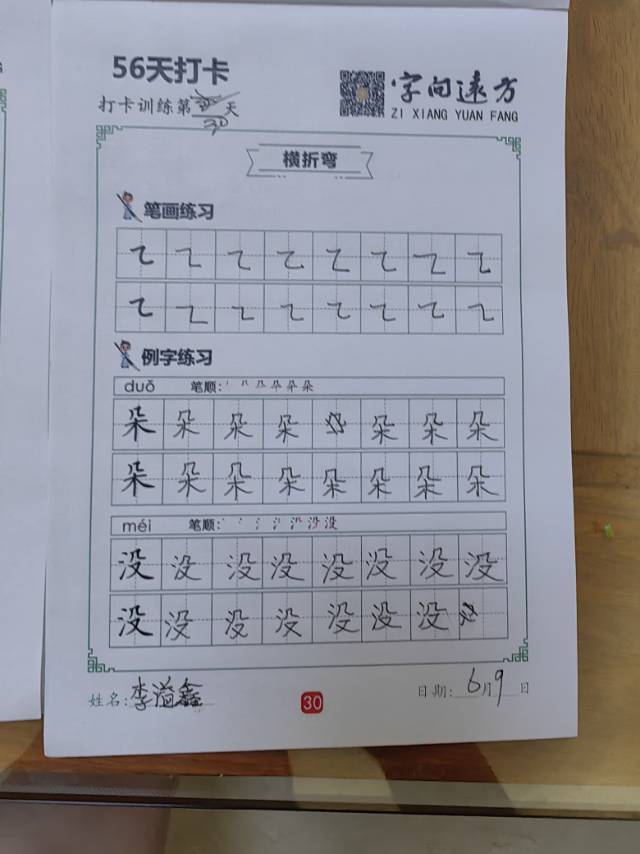 56天打卡
字向远方
ZI XIANG YUAN FANG
打卡训练第30天
横折弯
笔画练习
㇍ ㇍ ㇍ ㇍ ㇍ ㇍ ㇍ ㇍
㇍ ㇍ ㇍ ㇍ ㇍ ㇍ ㇍ ㇍
例字练习
duǒ 笔顺:
朵 朵 朵 朵 朵 朵 朵
朵 朵 朵 朵 朵 朵 朵 朵
méi 笔顺:
没 没 没 没 没 没 没 没
没 没 没 没 没 没 没
姓名:李溢鑫
30
日期: 6月9日